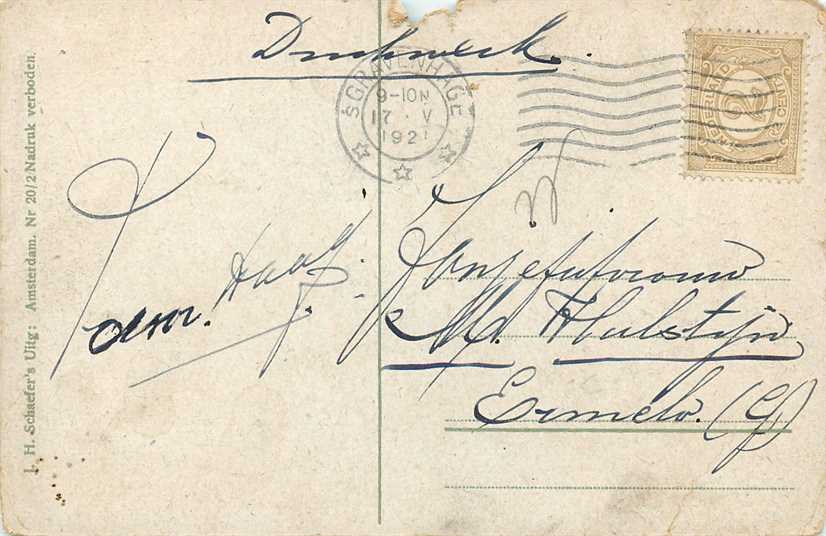 Drukwerk.
'S GRAVENHAGE
9-10N
17 · V
1921
NEDERLAND
2
CENT
den Haag.
Jongejufvrouw
M. Hulstijn
Ermelo. (G)
J. H. Schaefer's Uitg: Amsterdam. Nr 20/2 Nadruk verboden.